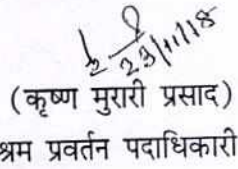 23/11/18
(कृष्ण मुरारी प्रसाद)
श्रम प्रवर्तन पदाधिकारी